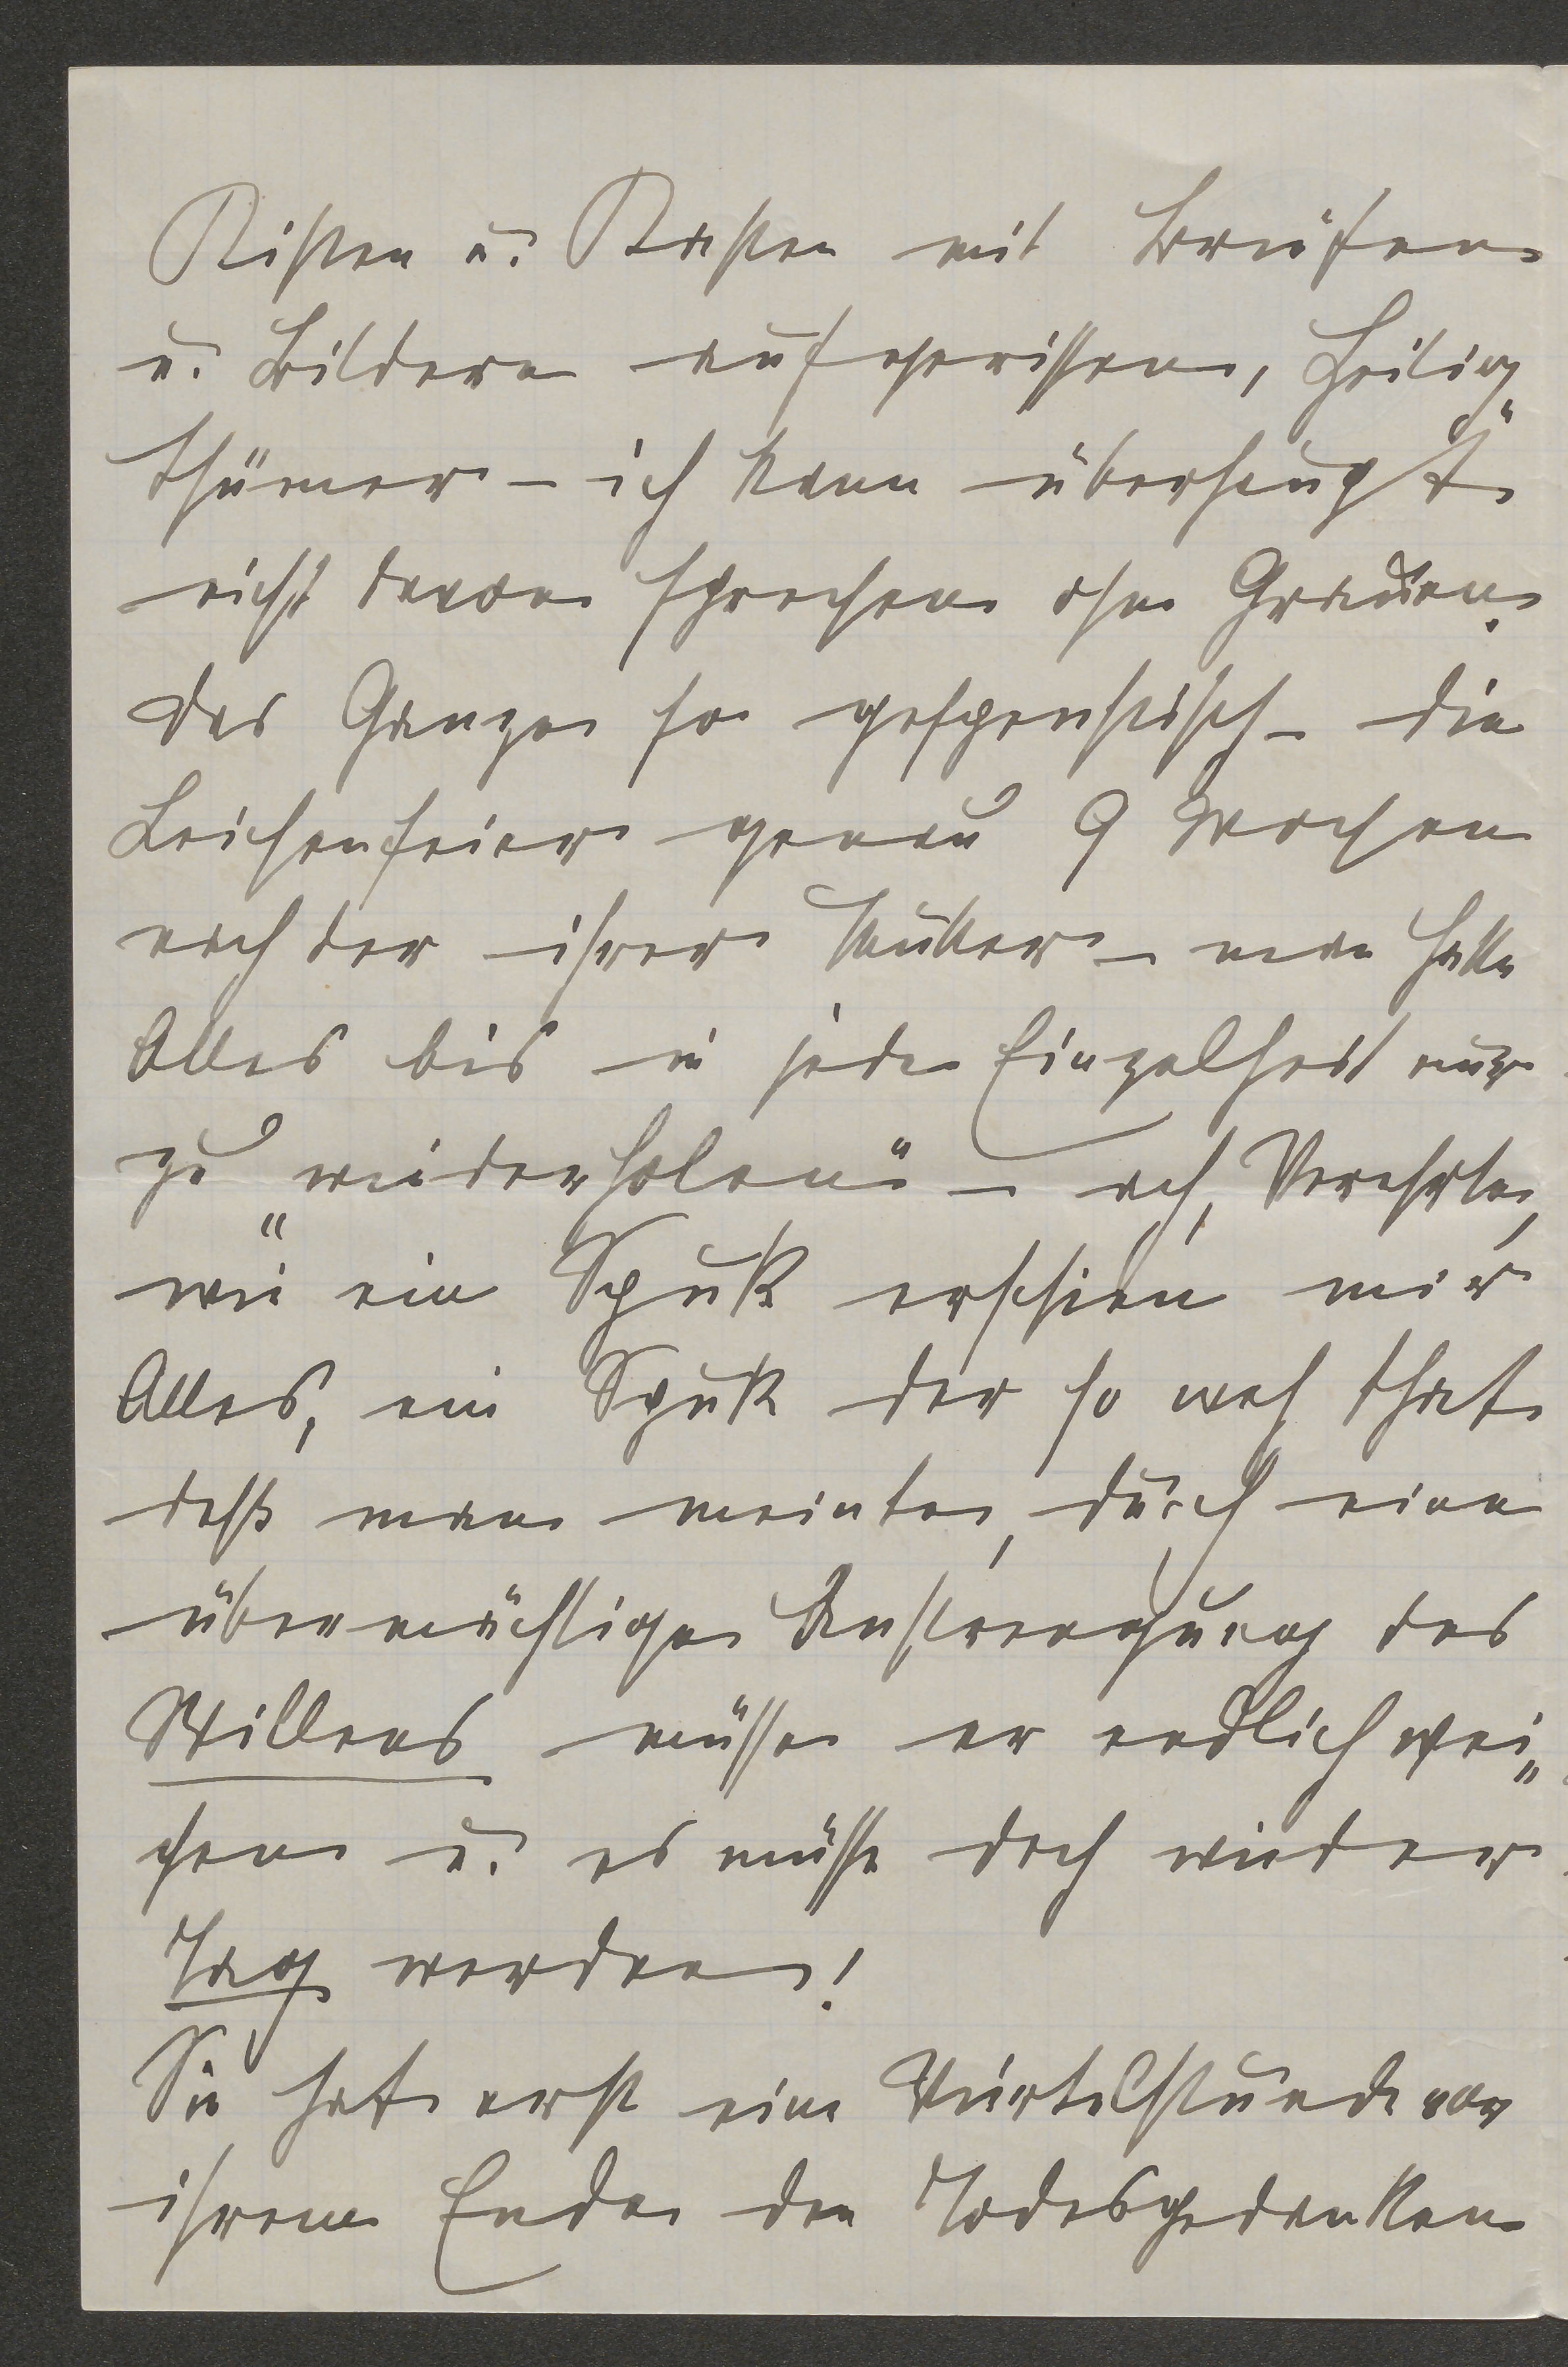 Kisten u. Kasten mit Briefen
u. Bildern aufgerissen, Heilig„
thümer – ich kann überhaupt
nicht davon sprechen ohne Grauen.
das Ganze so gespenstisch – die
Leichenfeier genau 9 Wochen
nach der ihrer Mutter – man hatte
Alles bis in jede Einzelheit nur
zu „wiederholen“ – ach, Verehrte,
wie ein Spuk erschien mir
Alles, ein Spuk der so weh that
daß man meinte, durch eine
übermächtige Anstrengung des
Willens müsse er endlich wei„
chen u. es müsse doch wieder
Tag werden!
Sie hat erst eine Viertelstunde vor
ihrem Ende den Todesgedanken